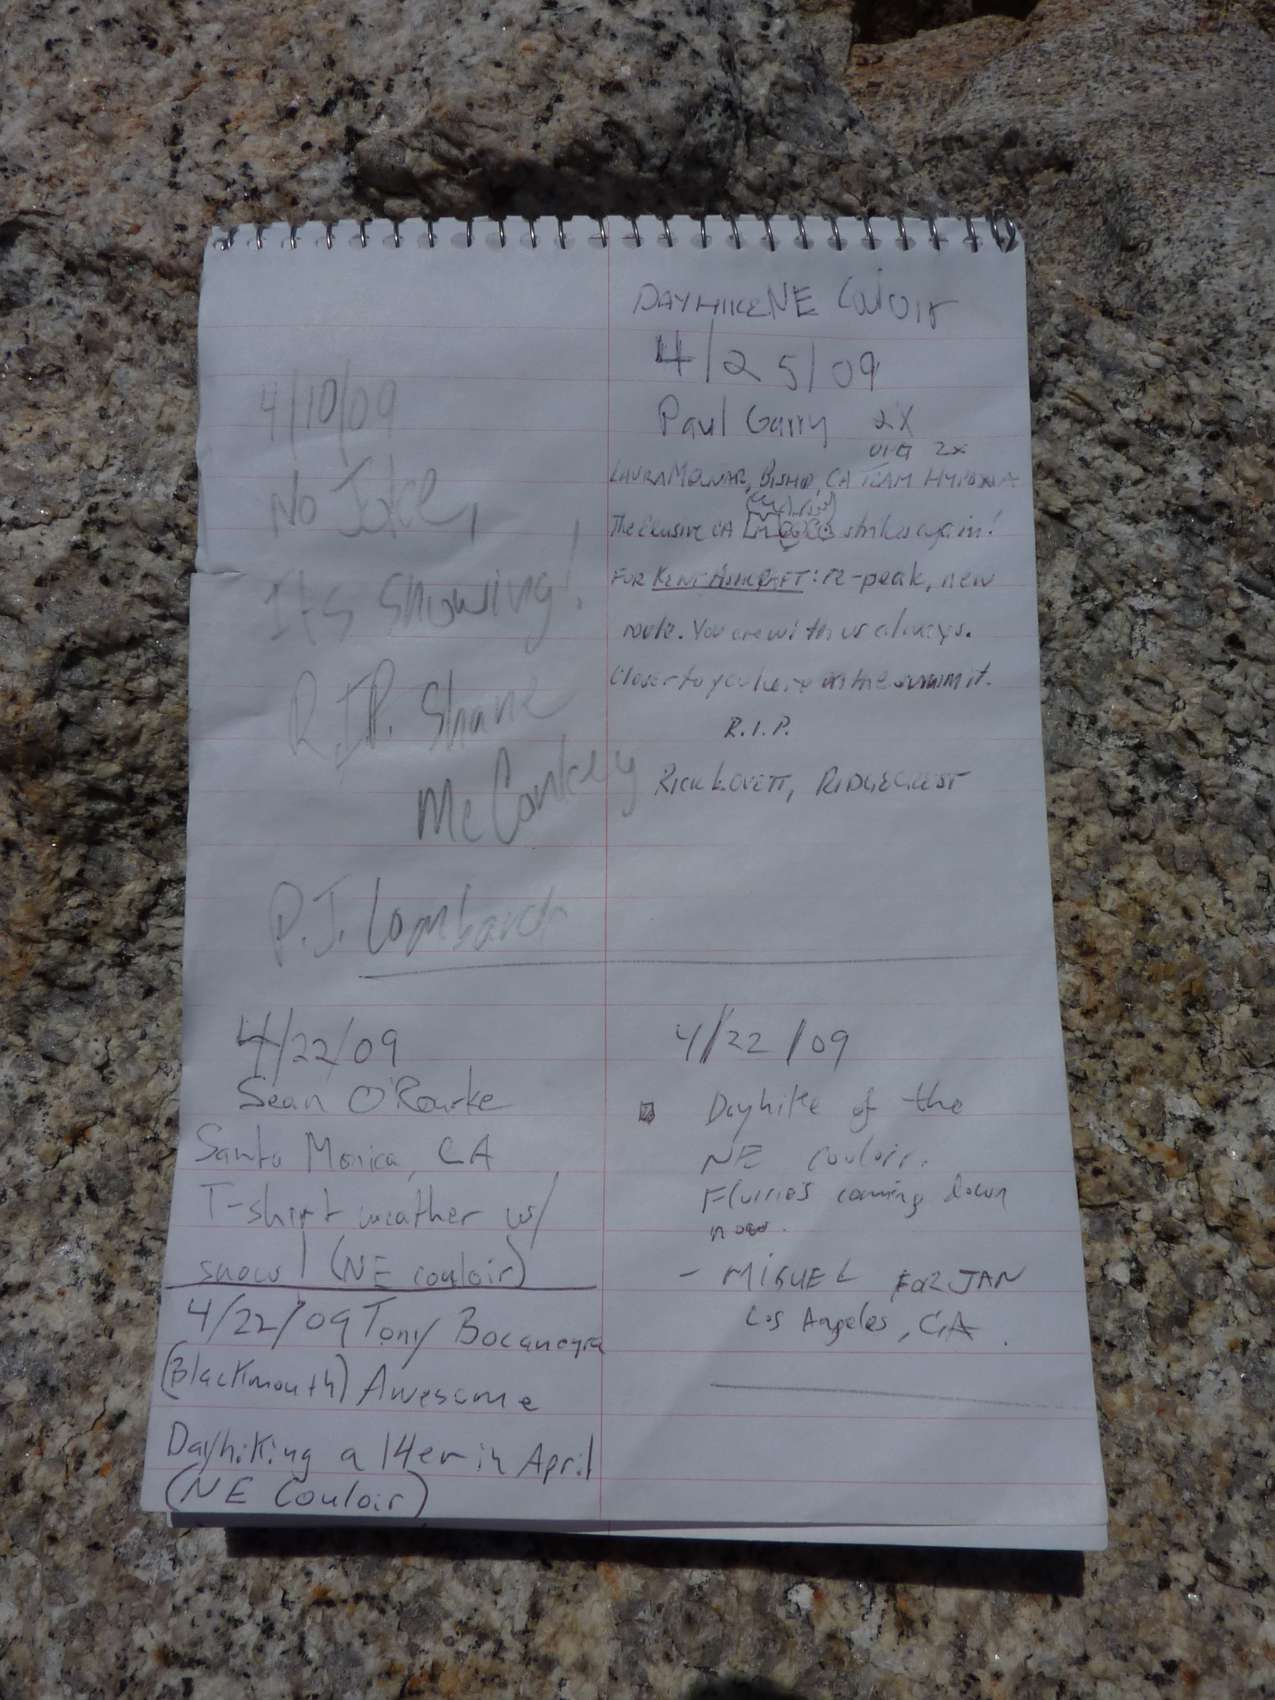 4/10/09
No Joke,
Its Snowing!
R.I.P. Shane
McConkey
P.J. Lombard
4/22/09
Sean O'Rourke
Santa Monica, CA
T-shirt weather w/
snow! (NE couloir)
4/22/09 Tony Bocanegra
(Blackmouth) Awesome
Dayhiking a 14er in April
(NE Couloir)
DAYHIKE NE
4/25/09
Paul Garry 2X
2x
LAURA MOLNAR, BISHOP, CA TEAM
The Elusive CA strikes again!
FOR KENT ASHCRAFT: re-peak, new
route. You are with us always.
Closer to you here on the summit.
R.I.P.
RICK LOVETT, RIDGECREST
4/22/09
Dayhike of the
NE couloir.
Flurries coming down
now.
- MIGUEL FORJAN
Los Angeles, CA